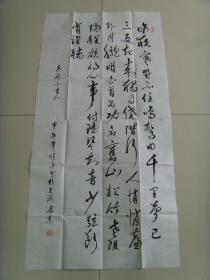 昨夜寒蛩不住鳴驚回千里夢已
三更起来獨自繞階行人悄悄簾
外月朧明白首为功名舊山松竹老阻
歸程欲將心事付瑶琴知音少弦斷
有誰聽
岳飛小重山
甲午年